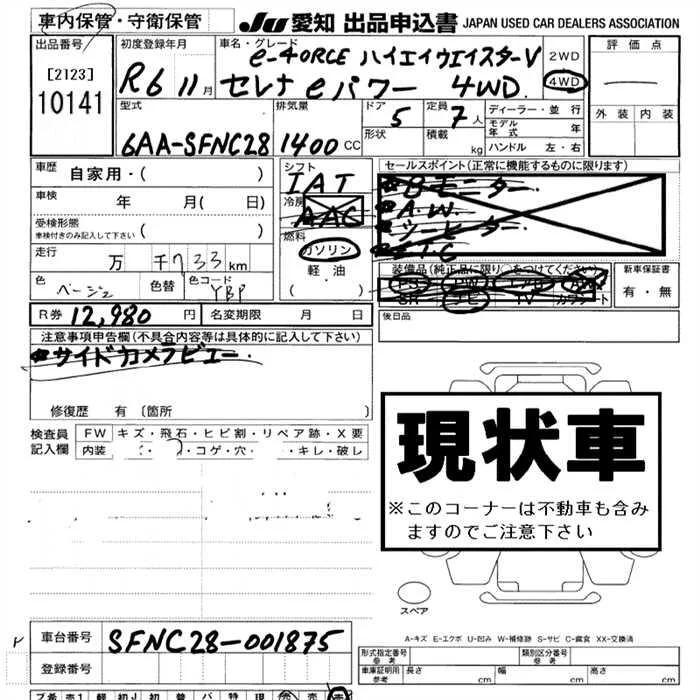 車内保管・守衛保管
JU 愛知 出品申込書 JAPAN USED CAR DEALERS ASSOCIATION
出品番号 初度登録年月 車名・グレード 2WD 評価点
[2123] R6 11月 e-4ORCE ハイエイウエイスターV
10141 セレナ eパワー 4WD. 4WD
型式 排気量 ドア 定員 ディーラー・並行 外装 内装
6AA-SFNC28 1400CC 5 7人 モデル年式 年
形状 積載 kg ハンドル 左・右
車歴 自家用・( ) シフト セールスポイント(正常に機能するものに限ります)
IAT Bモニター
車検 年 月( 日) 冷房 AAC A.W.
受検形態 シートヒーター
車検付きのみ記入して下さい ( ) 燃料 ETC
走行 万 千733km ガソリン 装備品(純正品に限り○をつけてください) 新車保証書
軽油 PS PW エアB AW 有・無
色 ベージュ 色替 色コード YBP ( ) SR ナビ TV カワシート
R券 12,980円 名変期限 月 日 後日品
注意事項申告欄(不具合内容等は具体的に記入して下さい)
サイドカメラビュー
修復歴 有 〔箇所 〕
検査員 FW キズ・飛石・ヒビ割・リペア跡・X要
記入欄 内装 コゲ・穴・ ・キレ・破レ
現状車
※このコーナーは不動車も含み
ますのでご注意下さい
スペア
A-キズ E-エクボ U-凹み W-補修跡 S-サビ C-腐食 XX-交換済
車台番号 SFNC28-001875
型式指定番号 参考 類別区分番号 参考
登録番号 車庫証明用 参考 長さ cm 幅 cm 高さ cm